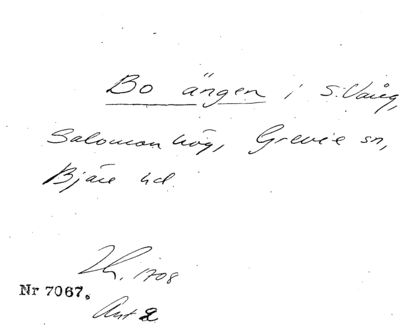 Bo ängen i S. Vång,
Salomonhög, Grevie sn,
Bjäre hd.
1708
Nr 7067.
Ant 2